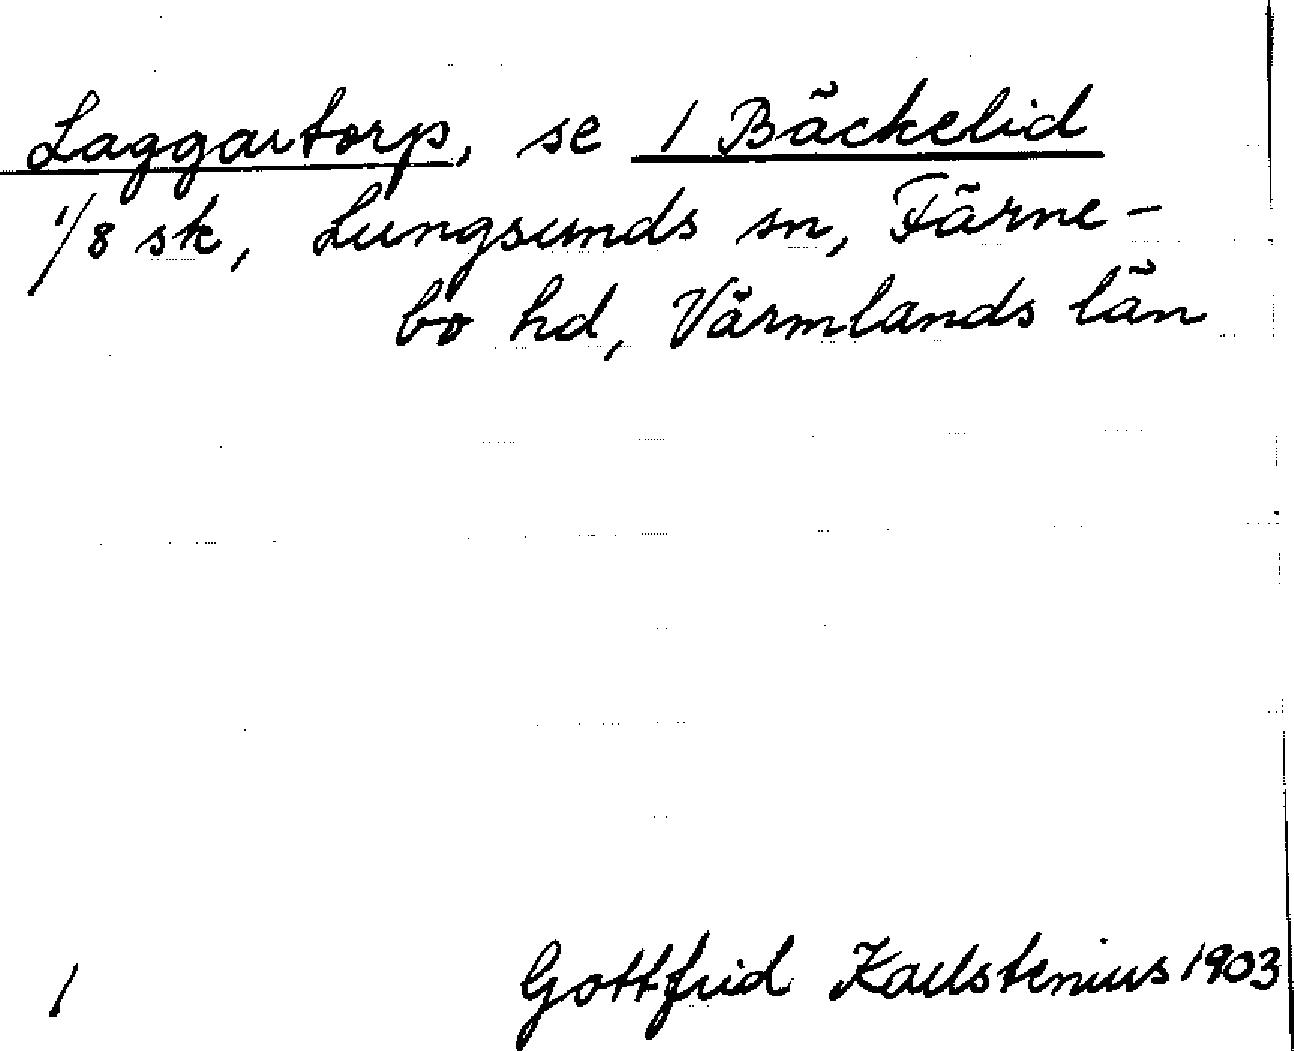 Laggartorp, se 1 Bäckelid
1/8 sk, Lungsunds sn, Färne-
bo hd, Värmlands län
1 Gottfrid Kallstenius 1903